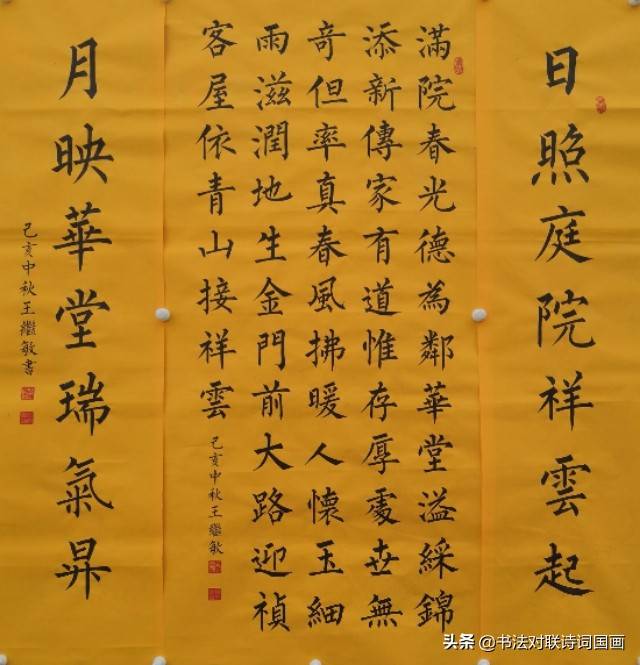 日照庭院祥雲起
滿院春光德為鄰華堂溢綵錦
添新傳家有道惟存厚處世無
奇但率真春風拂暖人懷玉細
雨滋潤地生金門前大路迎禎
客屋依青山接祥雲
己亥中秋王繼敏
月映華堂瑞氣昇
己亥中秋王繼敏書
头条 @书法对联诗词国画